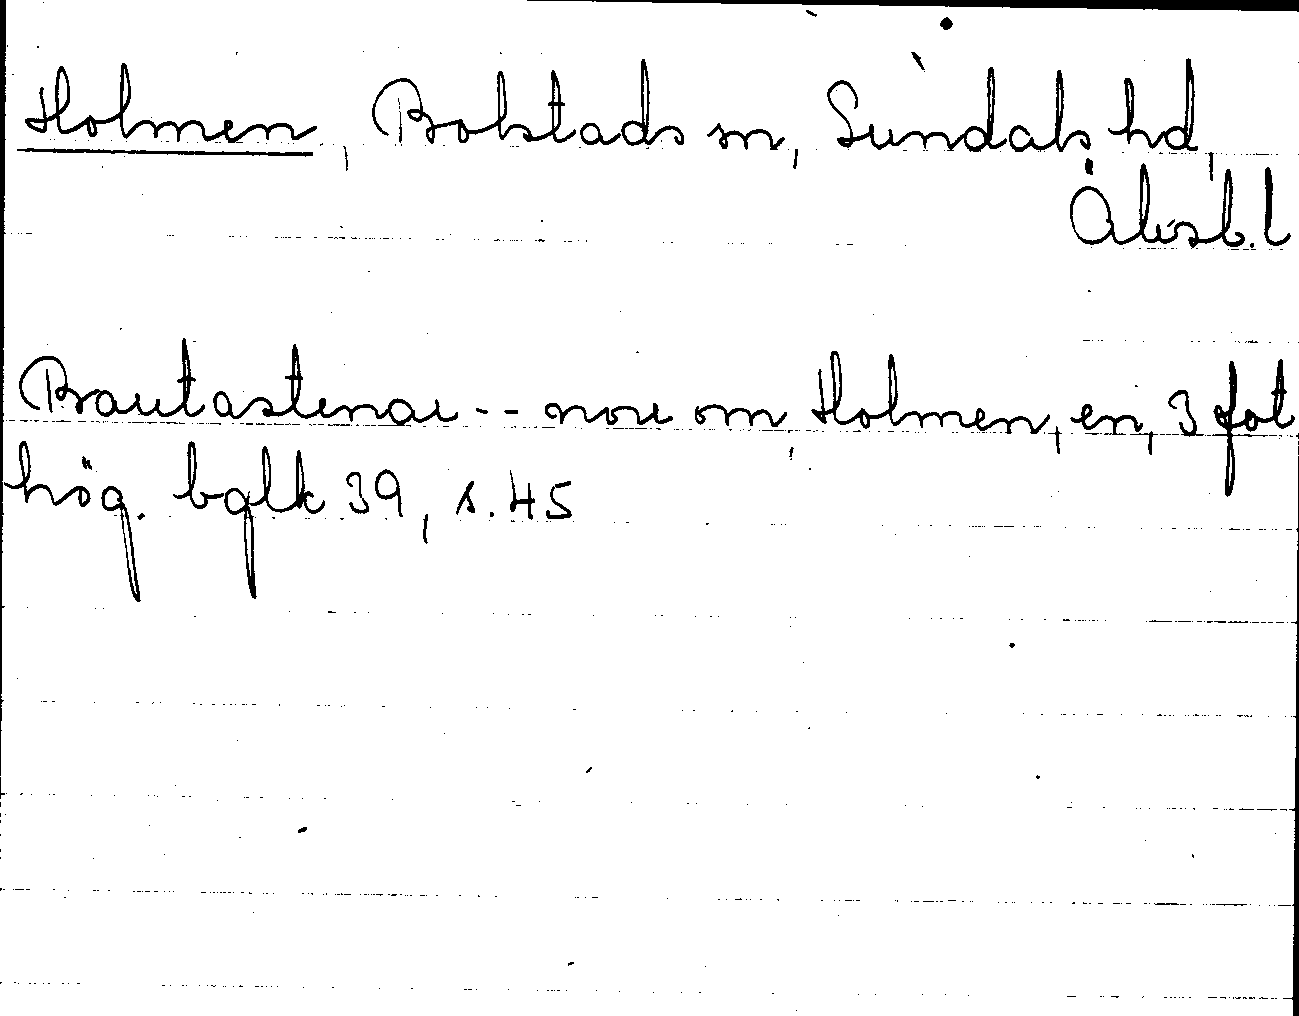 Holmen, Bolstads sn, Sundals hd,
Älvsb.l
Bautastenar -- norr om Holmen, en, 3 fot
hög. bglk 39, s. 45